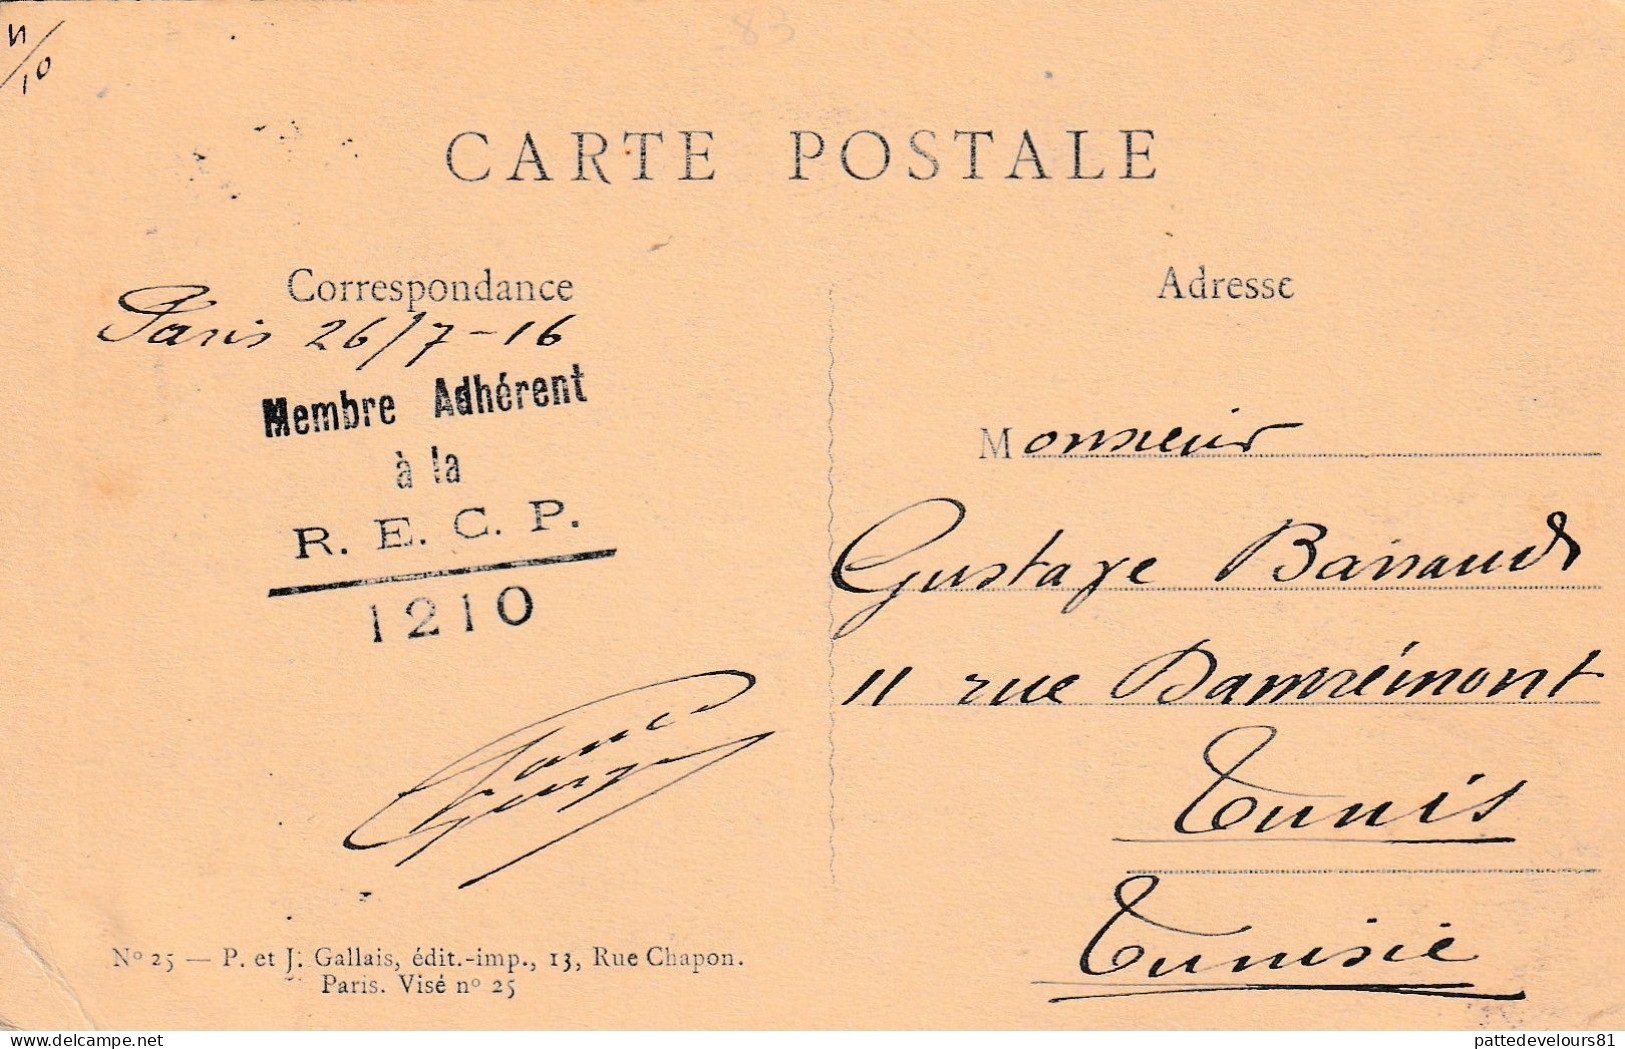 CARTE POSTALE
Correspondance
Paris 26/7-16
Membre Adhérent
à la
R. E. C. P.
1210
Nº 25 — P. et J. Gallais, édit.-imp., 13, Rue Chapon.
Paris. Visé nº 25
Adresse
Monsieur
Gustave
11 rue Damrémont
Tunis
Tunisie
www.delcampe.net
pattedevelours81